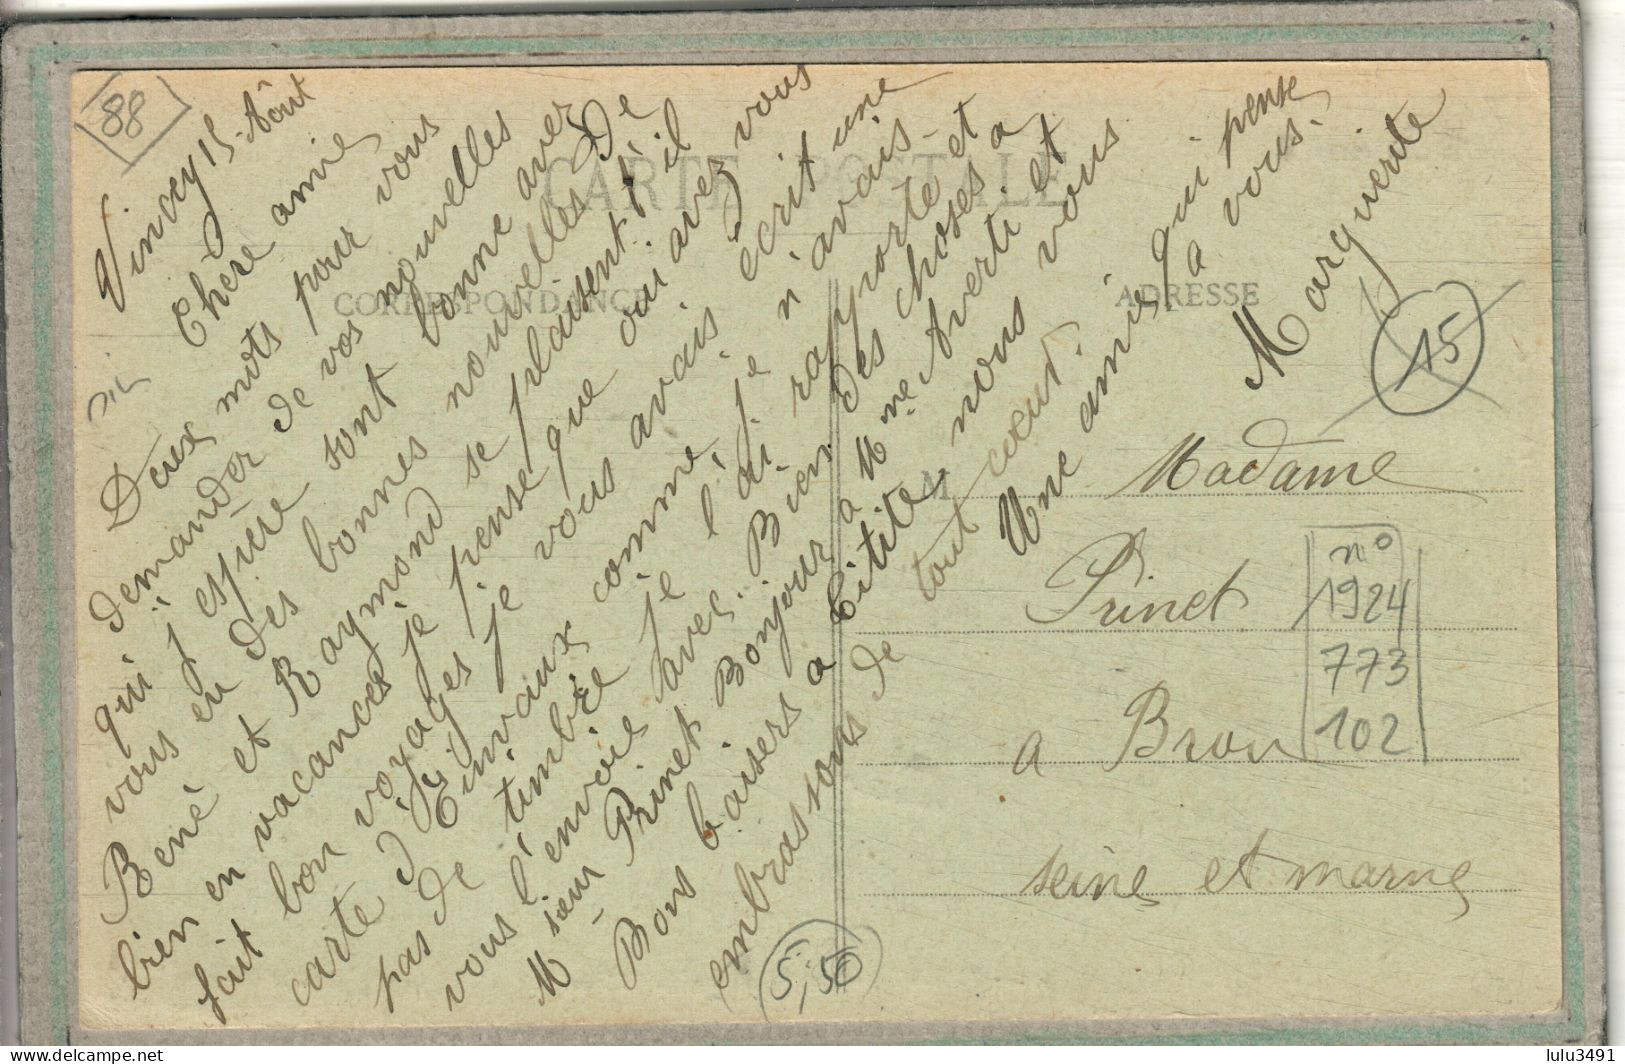 88
Vincey 15 Aôut
Chère amie
Deux mots pour vous
demander de vos nouvelles
qui j'espère sont bonne avec
vous en des bonnes nouvelles De
René et Raymond se plaisent t'il
bien en vacances je pense que oui avez vous
fait bon voyages je vous avais écrit une
carte d'Einvaux comme je n'avais
pas de timbre je l'ai rapporté et
vous l'envoie avec. Bien des choses a
M sieur Prinet Bonjour a Mme Averti et
Bons baisers a Titite nous vous
embrassons de tout cœur.
Une amie qui pense
a vous.
Marguerite
CARTE POSTALE
CORRESPONDANCE
ADRESSE
15
M
Madame
Prinet
a Bron
seine et marne
n°
1924
773
102
5,50
lulu3491